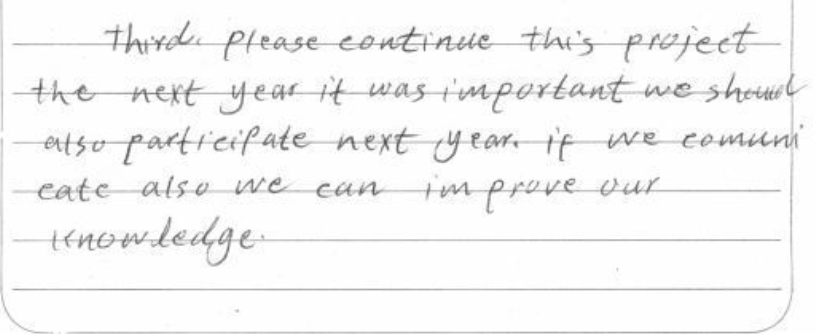 Third. please continue this project
the next year it was important we should
also participate next year. if we comuni
cate also we can improve our
knowledge.